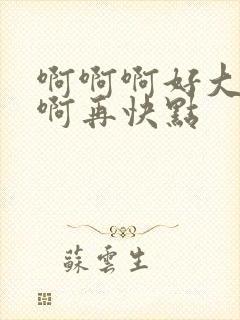 啊啊啊好大
啊再快點
蘇雲生